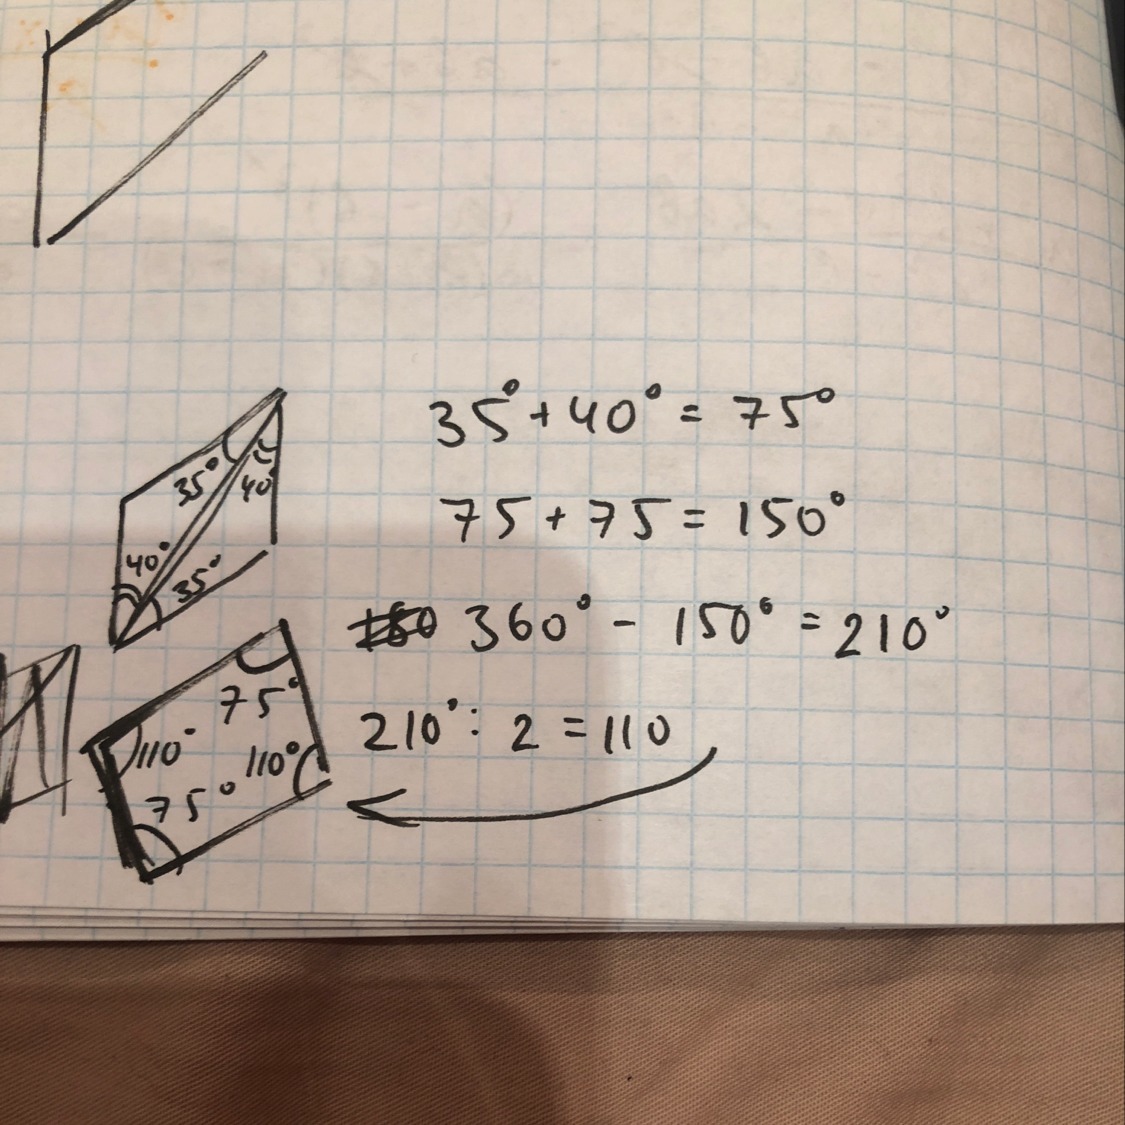 35° + 40° = 75°
35° 40
75 + 75 = 150°
40° 35°
360° - 150° = 210°
75°
210° : 2 = 110
110° 110°
75°